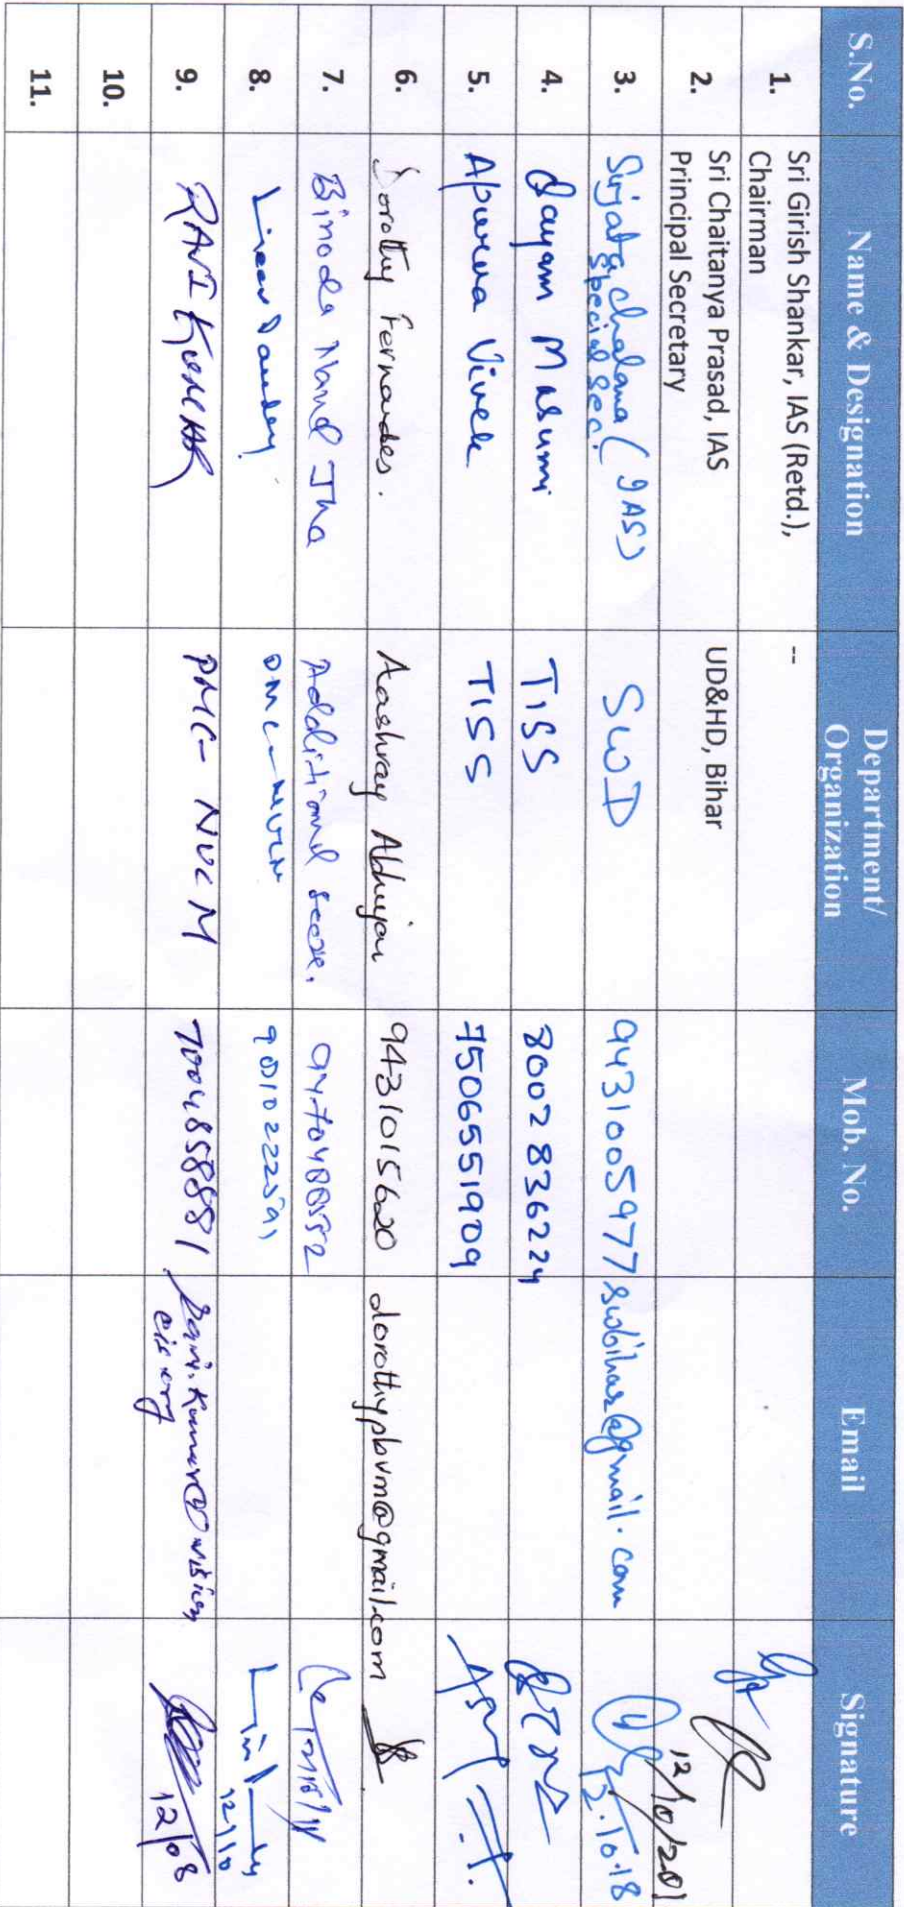 S.No.
Name & Designation
Department/
Organization
Mob. No.
Email
Signature
1.
Sri Girish Shankar, IAS (Retd.),
Chairman
--
2.
Sri Chaitanya Prasad, IAS
Principal Secretary
UD&HD, Bihar
12/10/201
3.
Sujata Chalana (IAS)
Special Sec.
SWD
9431005977
swbihar@gmail.com
12.10.18
4.
Sayam Masumi
TISS
8002836224
5.
Apurva Vivek
TISS
7506551909
6.
Dorothy Fernandes.
Aashray Abhiyan
9431015620
dorothypbvm@gmail.com
7.
Binoda Nand Jha
Additional
8.
12/10
9.
RAVI KUMAR
PMC- NUCM
7004858881
12/08
10.
11.